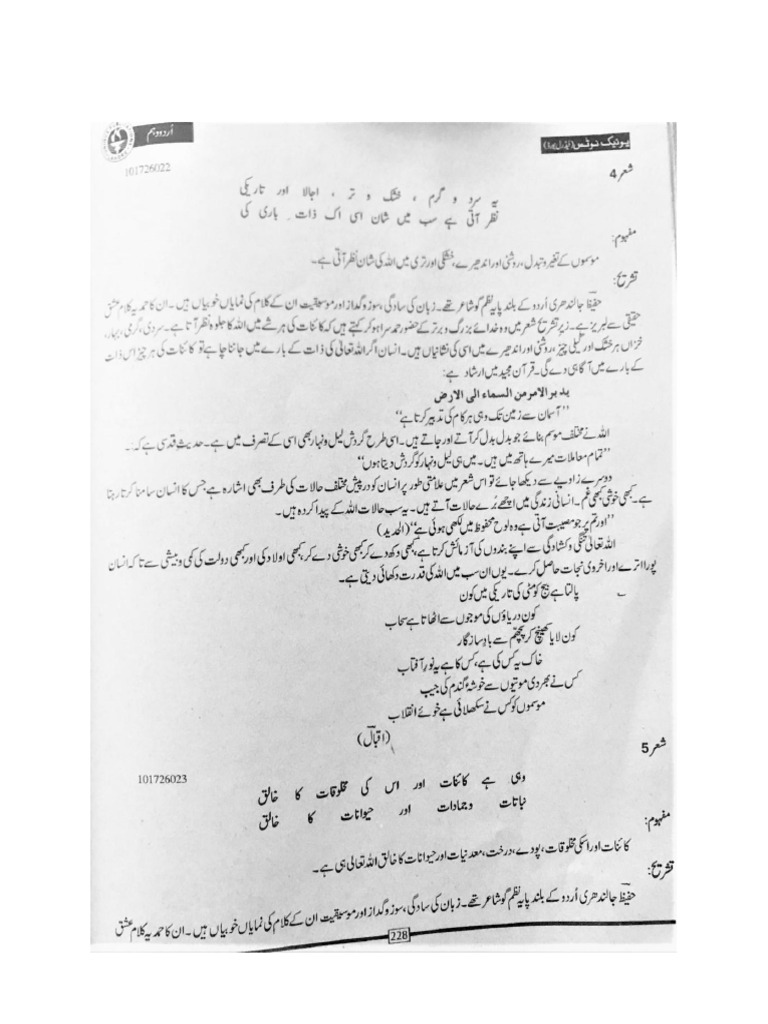 یونیک نوٹس (فیڈرل بورڈ)
اُردو دہم
شعر 4
101726022
یہ سرد و گرم ، خشک و تر ، اجالا اور تاریکی
نظر آتی ہے سب میں شان اسی اک ذات باری کی
مفہوم:
موسموں کے تغیر و تبدل، روشنی اور اندھیرے، خشکی اور تری میں اللہ کی شان نظر آتی ہے۔
تشریح:
حفیظ جالندھری اُردو کے بلند پایہ نظم گو شاعر تھے۔ زبان کی سادگی، سوز و گداز اور موسیقیت ان کے کلام کی نمایاں خوبیاں ہیں۔ ان کا حمدیہ کلام عشق
حقیقی سے لبریز ہے۔ زیرِ تشریح شعر میں وہ خدائے بزرگ و برتر کے حضور حمد سرا ہو کر کہتے ہیں کہ کائنات کی ہر شے میں اللہ کا جلوہ نظر آتا ہے۔ سردی، گرمی، بہار،
خزاں ہر خشک اور گیلی چیز، روشنی اور اندھیرے میں اسی کی نشانیاں ہیں۔ انسان اگر اللہ تعالیٰ کی ذات کے بارے میں جاننا چاہے تو کائنات کی ہر چیز اس ذات
کے بارے میں آگاہی دے گی۔ قرآن مجید میں ارشاد ہے:
يدبر الامر من السماء الى الارض
"آسمان سے زمین تک وہی ہر کام کی تدبیر کرتا ہے"
اللہ نے مختلف موسم بنائے جو بدل بدل کر آتے اور جاتے ہیں۔ اسی طرح گردش لیل و نہار بھی اسی کے تصرف میں ہے۔ حدیثِ قدسی ہے کہ:
"تمام معاملات میرے ہاتھ میں ہیں۔ میں ہی لیل و نہار کو گردش دیتا ہوں"
دوسرے زاویے سے دیکھا جائے تو اس شعر میں علامتی طور پر انسان کو درپیش مختلف حالات کی طرف بھی اشارہ ہے جس کا انسان سامنا کرتا رہتا
ہے۔ کبھی خوشی کبھی غم۔ انسانی زندگی میں اچھے بُرے حالات آتے ہیں۔ یہ سب حالات اللہ کے پیدا کردہ ہیں۔
"اور تم پر جو مصیبت آتی ہے وہ لوح محفوظ میں لکھی ہوئی ہے" (الحدید)
اللہ تعالیٰ تنگی و کشادگی سے اپنے بندوں کی آزمائش کرتا ہے، کبھی دکھ دے کر کبھی خوشی دے کر، کبھی اولاد کی اور کبھی دولت کی کمی و بیشی سے تاکہ انسان
پورا اترے اور اخروی نجات حاصل کرے۔ یوں ان سب میں اللہ کی قدرت دکھائی دیتی ہے۔
پالتا ہے بیج کو مٹی کی تاریکی میں کون
کون دریاؤں کی موجوں سے اٹھاتا ہے سحاب
کون لایا کھینچ کر پچھّم سے بادِ سازگار
خاک یہ کس کی ہے، کس کا ہے یہ نورِ آفتاب
کس نے بھر دی موتیوں سے خوشۂ گندم کی جیب
موسموں کو کس نے سکھلائی ہے خوئے انقلاب
(اقبال)
شعر 5
101726023
وہی ہے کائنات اور اس کی مخلوقات کا خالق
نباتات و جمادات اور حیوانات کا خالق
مفہوم:
کائنات اور اسکی مخلوقات، پودے، درخت، معدنیات اور حیوانات کا خالق اللہ تعالیٰ ہی ہے۔
تشریح:
حفیظ جالندھری اُردو کے بلند پایہ نظم گو شاعر تھے۔ زبان کی سادگی، سوز و گداز اور موسیقیت ان کے کلام کی نمایاں خوبیاں ہیں۔ ان کا حمدیہ کلام عشق
228